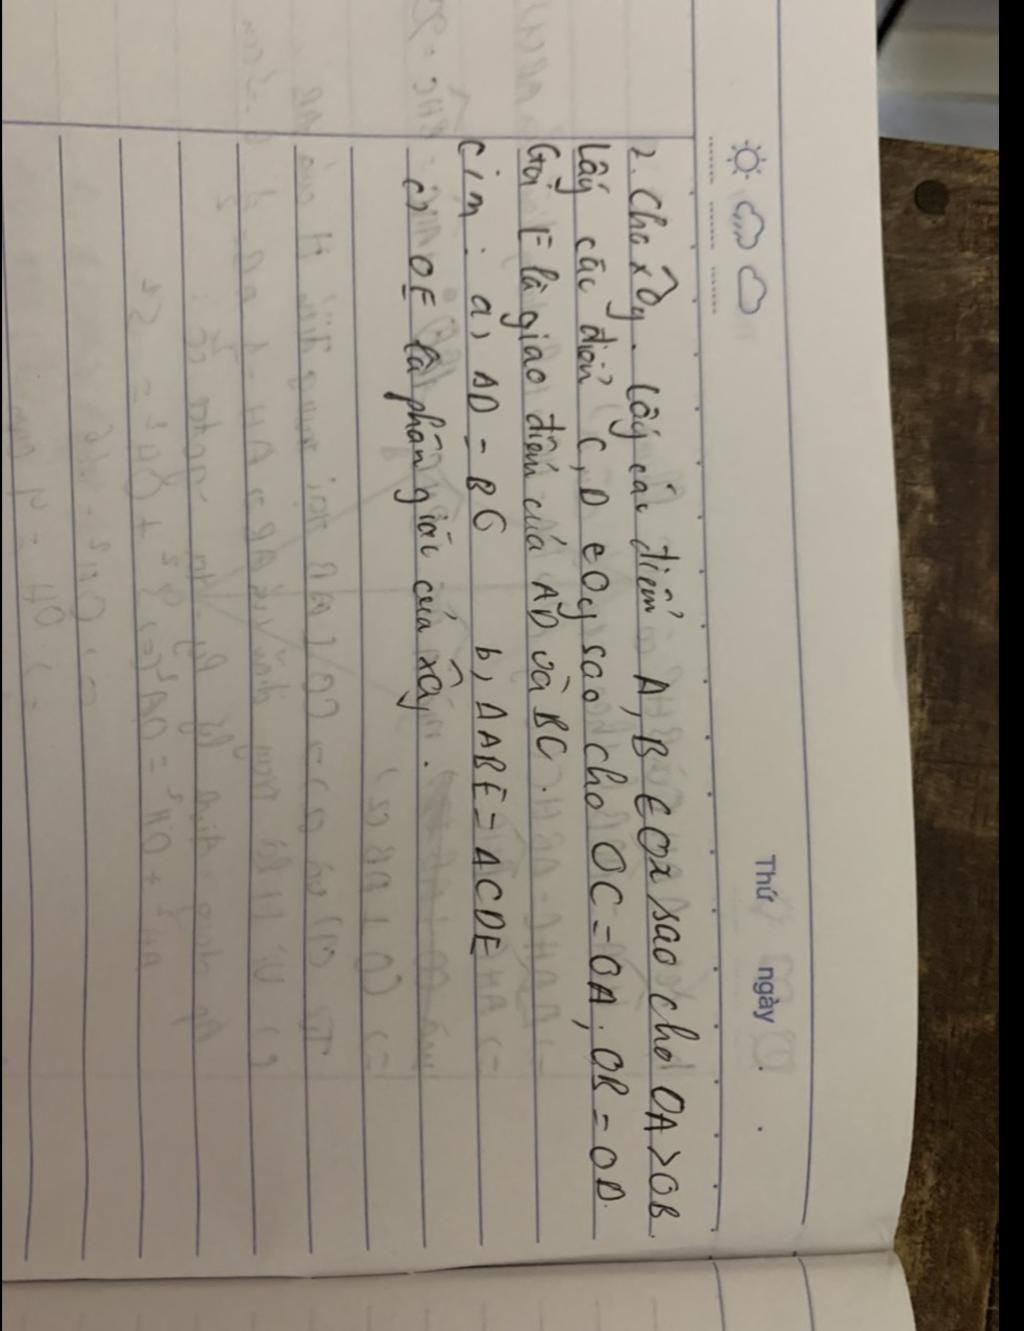 Thứ ngày
2. Cho xOy. Lấy các điểm A, B ∈ Ox sao cho OA > OB.
Lấy các điểm C, D ∈ Oy sao cho OC = OA, OB = OD.
Gọi E là giao điểm của AD và BC.
C/m: a, AD = BC b, ΔABE = ΔCDE
c, OE là phân giác của xOy.